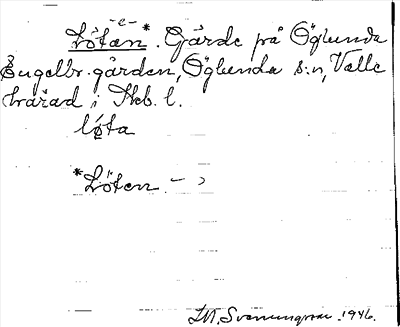 -e-
Lötan*. Gärde på Öglunda
Engelbr.gården, Öglunda s:n, Valle
härad i Skb. l.
løta
*Löten -
Svenningsson. 1946.